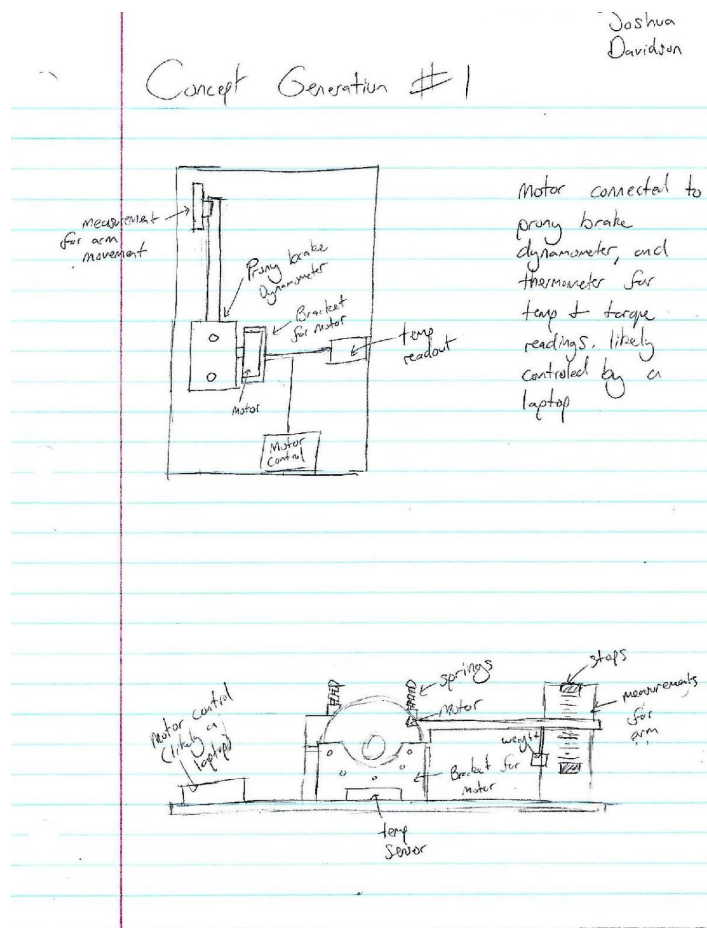 Joshua
Davidson
Concept Generation #1
measurement
for arm
movement
Prony brake
Dynamometer
Bracket
for motor
temp
readout
motor
Motor
Control
Motor connected to
prony brake
dynamometer, and
thermometer for
temp + torque
readings. likely
controled by a
laptop
stops
springs
Motor
measurements
for
arm
Motor control
(likely a
laptop)
weight
Bracket for
motor
temp
sensor